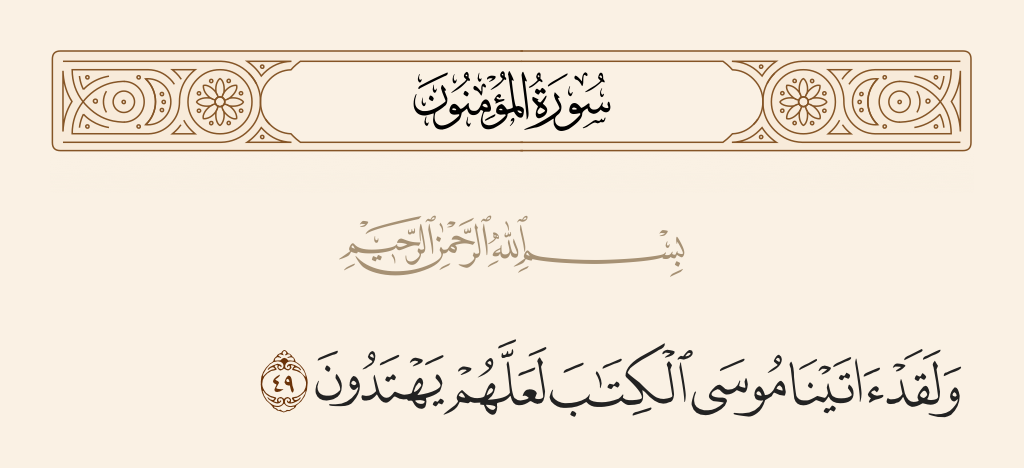 سُورَةُ المُؤْمِنُونَ
بِسْمِ ٱللَّهِ ٱلرَّحْمَٰنِ ٱلرَّحِيمِ
وَلَقَدْ ءَاتَيْنَا مُوسَى ٱلْكِتَٰبَ لَعَلَّهُمْ يَهْتَدُونَ ٤٩